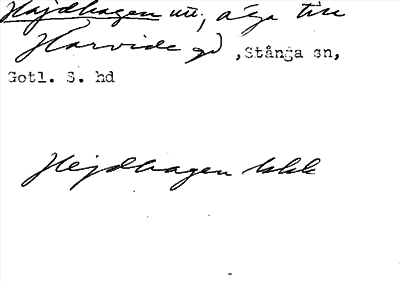 Hajdhagen utt., äga till
Harvide gd, Stånga sn,
Gotl. S. hd
Hejdhagen